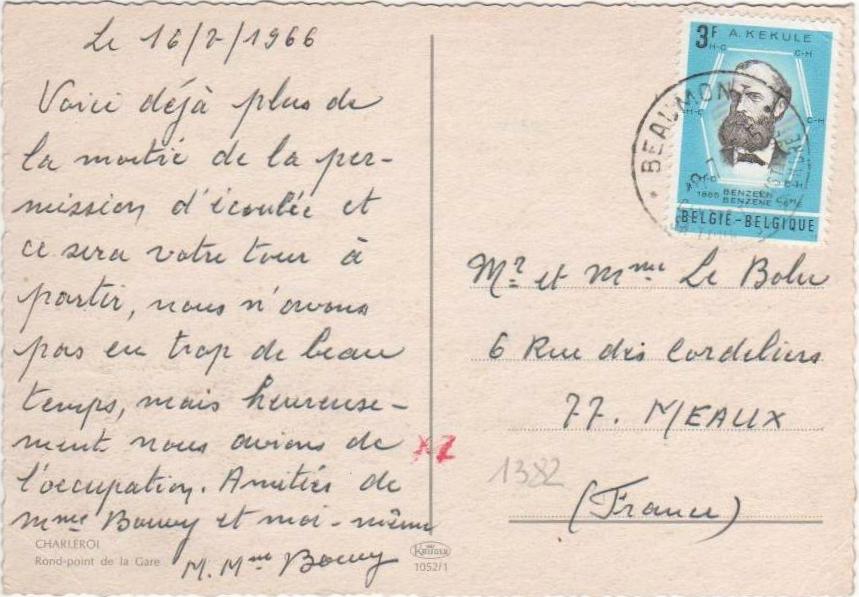 Le 16/7/1966
Voici déjà plus de
la moitié de la per-
mission d'écoulée et
ce sera votre tour à
partir, nous n'avons
pas eu trop de beau
temps, mais heureuse-
ment nous avions de
l'occupation. Amitiés de
Mme Bouvy et moi-même
M. Mme Bouvy
CHARLEROI
Rond-point de la Gare
KRUGER
1052/1
3F A. KEKULE
H-C C-H
H-C C-H
H-C C-H
1865 BENZEEN C6H6
BENZENE
BELGIË-BELGIQUE
BEAUMONT
Mr et Mme Le Bolu
6 Rue des Cordeliers
77. MEAUX
1382
(France)